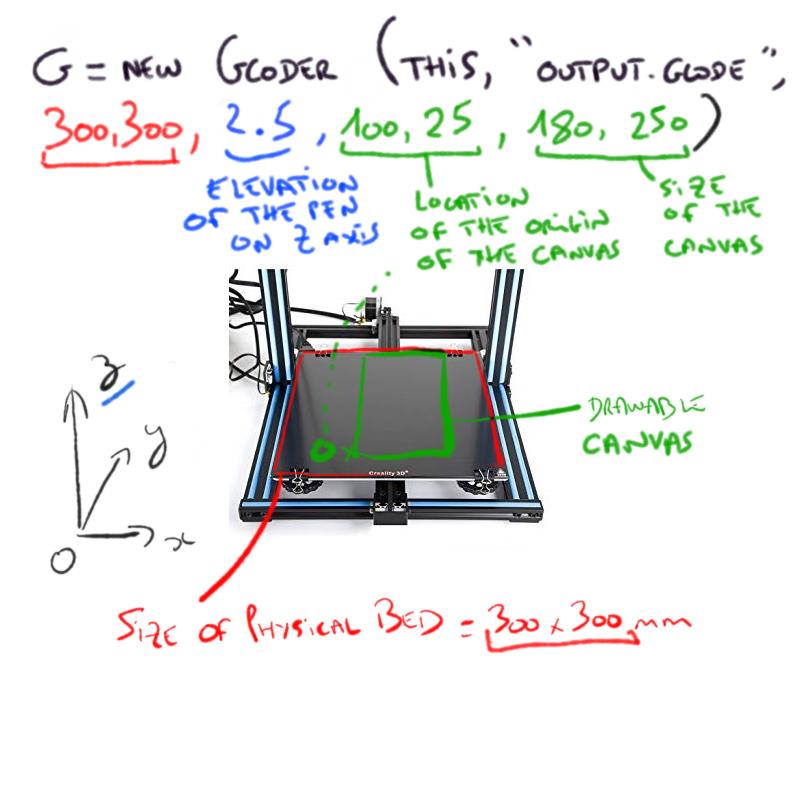 G = NEW GCODER (THIS, "OUTPUT.GCODE",
300,300, 2.5, 100, 25, 180, 250)
ELEVATION
OF THE PEN
ON Z AXIS
LOCATION
OF THE ORIGIN
OF THE CANVAS
SIZE
OF THE
CANVAS
z
y
x
O
O
x
DRAWABLE
CANVAS
Creality 3D
SIZE OF PHYSICAL BED = 300 x 300 mm